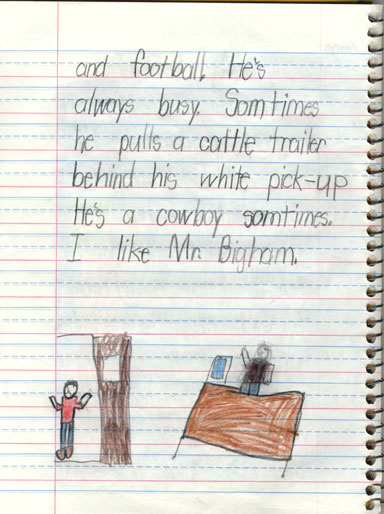 and football. He's
always busy. Somtimes
he pulls a cattle trailer
behind his white pick-up
He's a cowboy somtimes.
I like Mr. Bigham.